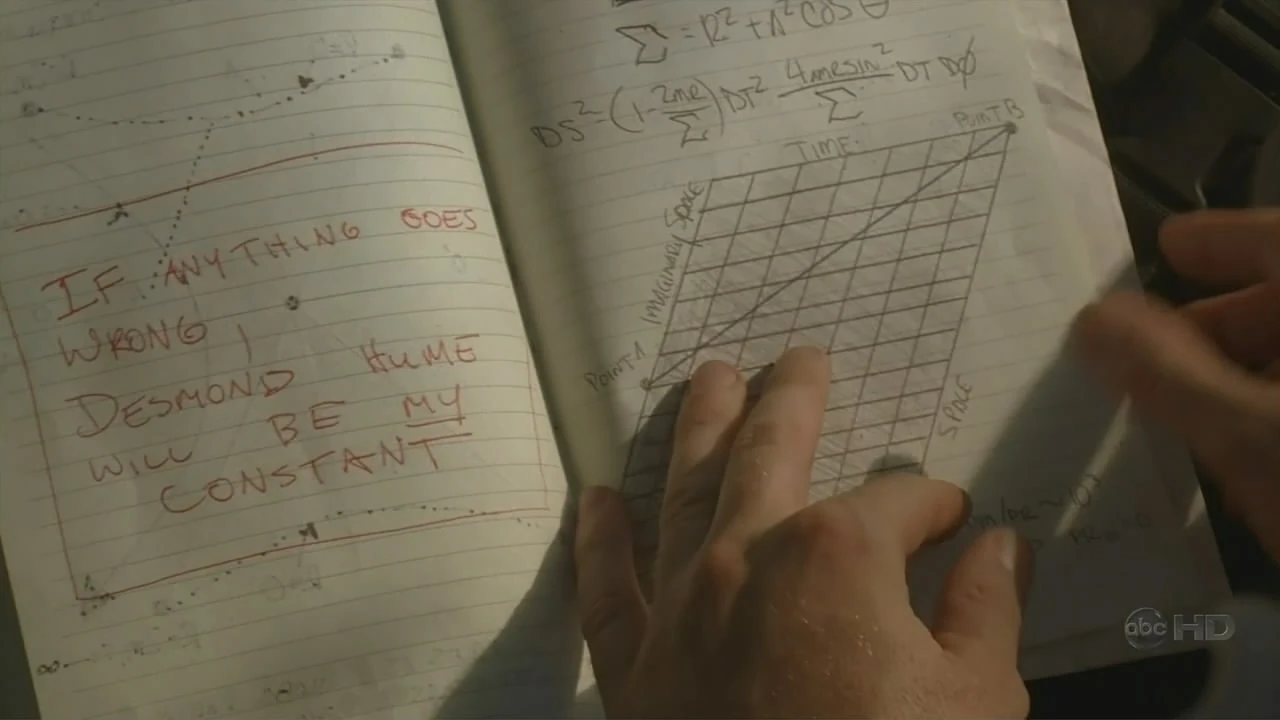 IF ANYTHING GOES
WRONG,
DESMOND HUME
WILL BE MY
CONSTANT
Σ = R² + A² COS θ
DS² = (1 - 2MR/Σ) DT² 4MRSIN²/Σ DT DØ
POINT B
TIME
IMAGINARY SPACE
POINT A
SPACE
abc HD